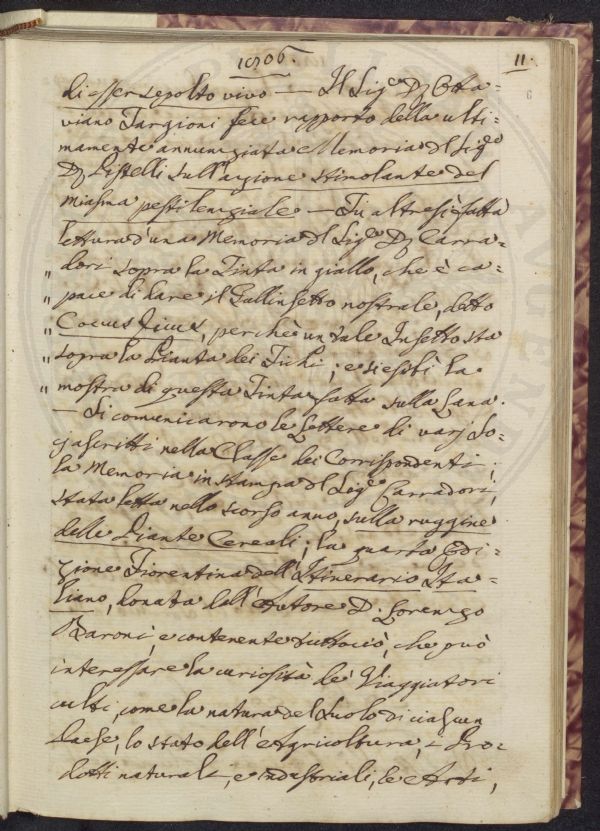 1806. 11.
di esser sepolto vivo — Il Sigr. Dr. Otta-
viano Targioni fece rapporto della ulti-
mamente annunziata Memoria del Sigr.
Dr. Pistelli sull'azione stimolante del
miasma pestilenziale — Fu altresì fatta
lettura d'una Memoria del Sigr. Dr. Carra-
" dori sopra la Tinta in giallo, che è ca-
" pace di dare il Gallinsetto nostrale, detto
" Coccus Ficus, perchè un tale Insetto sta
" sopra la Pianta dei Fichi; e si esibì la
" mostra di questa Tinta fatta sulla Lana.
— Si comunicarono le Lettere di varj So-
gj ascritti nella Classe dei Corrispondenti;
la Memoria in stampa del Sigr. Carradori,
stata letta nello scorso anno, sulla ruggine
delle Piante Cereali; la quarta Edi-
zione Fiorentina dell'Itinerario Ita-
liano, donata dall'Autore D. Lorenzo
Baroni, e contenente tuttociò, che può
interessare la curiosità de' Viaggiatori
culti, come la natura del Suolo di ciascun
Paese, lo stato dell'Agricoltura, i Pro-
dotti naturali, e industriali, le Arti,